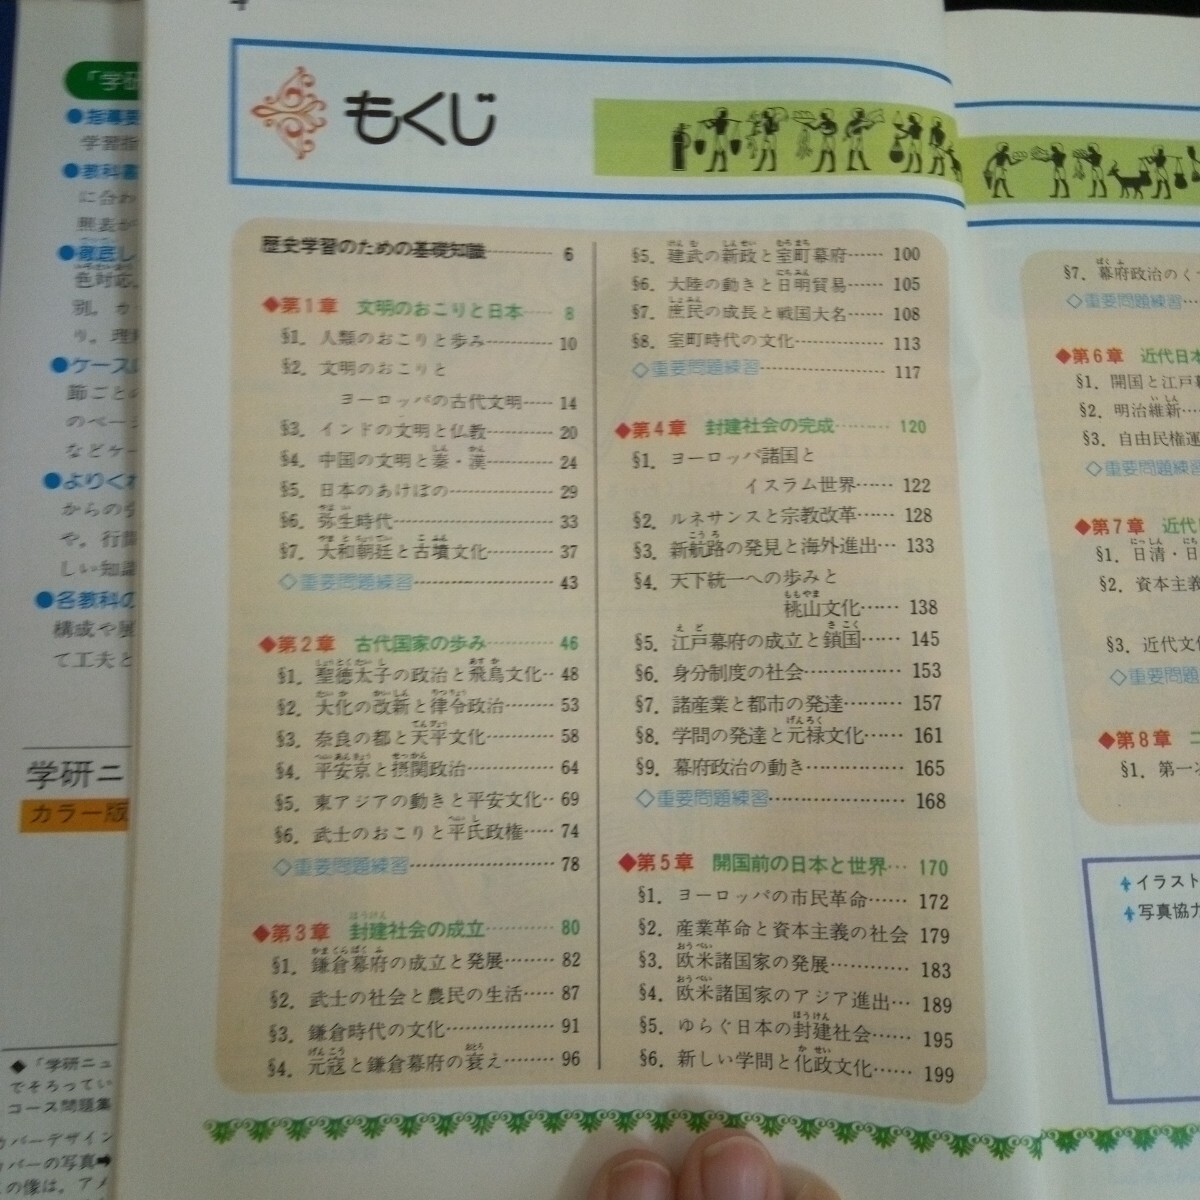 「学研
●指導要
学習指
●教科書
に合わ
照表が
●徹底し
色対応
別。カ
り。理
●ケース
節ごとの
のペー
などケー
●よりくわ
からの
や。行
しい知識
●各教科の
構成や展
て工夫と
学研ニ
カラー版
◆「学研ニュ
でそろってい
コース問題集
カバーデザイン
バーの写真➡
の像は。アメ
もくじ
歴史学習のための基礎知識 6
◆第1章 文明のおこりと日本…… 8
§1. 人類のおこりと歩み……… 10
§2. 文明のおこりと
ヨーロッパの古代文明…… 14
§3. インドの文明と仏教……… 20
§4. 中国の文明と秦・漢……… 24
§5. 日本のあけぼの……… 29
§6. 弥生時代……… 33
§7. 大和朝廷と古墳文化……… 37
◇重要問題練習……… 43
◆第2章 古代国家の歩み……… 46
§1. 聖徳太子の政治と飛鳥文化‥ 48
§2. 大化の改新と律令政治……… 53
§3. 奈良の都と天平文化……… 58
§4. 平安京と摂関政治……… 64
§5. 東アジアの動きと平安文化‥ 69
§6. 武士のおこりと平氏政権…… 74
◇重要問題練習……… 78
◆第3章 封建社会の成立……… 80
§1. 鎌倉幕府の成立と発展……… 82
§2. 武士の社会と農民の生活…… 87
§3. 鎌倉時代の文化……… 91
§4. 元寇と鎌倉幕府の衰え……… 96
§5. 建武の新政と室町幕府…… 100
§6. 大陸の動きと日明貿易…… 105
§7. 庶民の成長と戦国大名…… 108
§8. 室町時代の文化……… 113
◇重要問題練習……… 117
◆第4章 封建社会の完成……… 120
§1. ヨーロッパ諸国と
イスラム世界…… 122
§2. ルネサンスと宗教改革…… 128
§3. 新航路の発見と海外進出… 133
§4. 天下統一への歩みと
桃山文化…… 138
§5. 江戸幕府の成立と鎖国…… 145
§6. 身分制度の社会……… 153
§7. 諸産業と都市の発達……… 157
§8. 学問の発達と元禄文化…… 161
§9. 幕府政治の動き……… 165
◇重要問題練習……… 168
◆第5章 開国前の日本と世界… 170
§1. ヨーロッパの市民革命…… 172
§2. 産業革命と資本主義の社会 179
§3. 欧米諸国家の発展……… 183
§4. 欧米諸国家のアジア進出… 189
§5. ゆらぐ日本の封建社会…… 195
§6. 新しい学問と化政文化…… 199
§7. 幕府政治のく
◇重要問題練習…
◆第6章 近代日本
§1. 開国と江戸幕
§2. 明治維新…
§3. 自由民権運
◇重要問題練習
◆第7章 近代
§1. 日清・日
§2. 資本主義
§3. 近代文化
◇重要問題
◆第8章
§1. 第一次
イラスト
写真協力